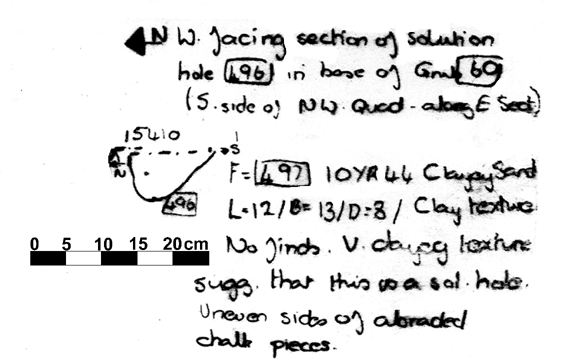 N W. facing section of solution
hole 496 in base of Grub 69
(S. side of NW. Quad - along E Sect)
15410
N S
F = 497 10YR 44 Clayey Sand
496
L=12/B=13/D=8/ Clay texture
0 5 10 15 20cm
No finds. V. clayey texture
sugg. that this is a sol. hole.
Uneven sides of abraded
chalk pieces.